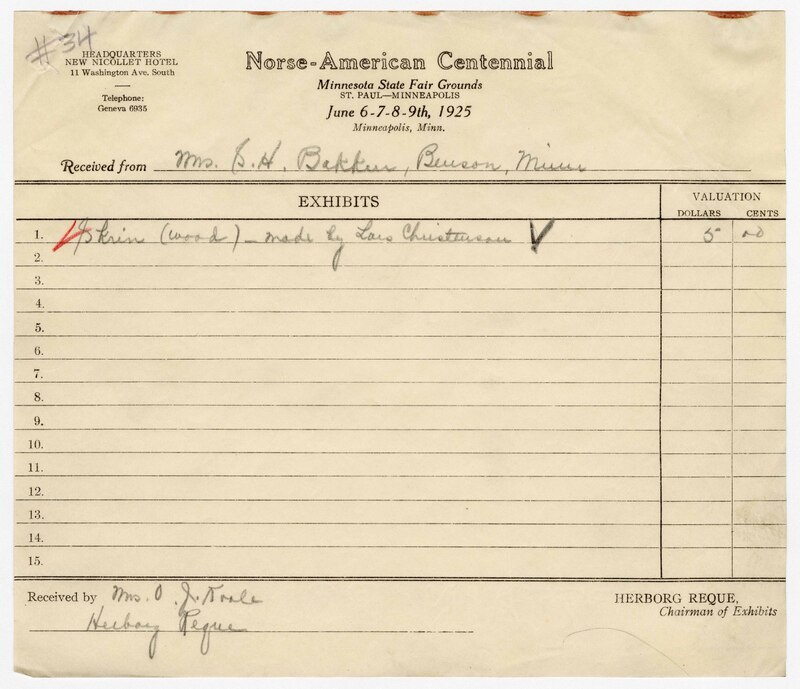 #34
HEADQUARTERS
NEW NICOLLET HOTEL
11 Washington Ave. South
Telephone:
Geneva 6935
Norse-American Centennial
Minnesota State Fair Grounds
ST. PAUL—MINNEAPOLIS
June 6-7-8-9th, 1925
Minneapolis, Minn.
Received from Mrs. S. H. Bakken, Benson, Minn
EXHIBITS
VALUATION
DOLLARS CENTS
1. Skrin (wood) – made by Lars Christenson 5 00
2.
3.
4.
5.
6.
7.
8.
9.
10.
11.
12.
13.
14.
15.
Received by Mrs. O. J.
Herborg Reque
HERBORG REQUE,
Chairman of Exhibits